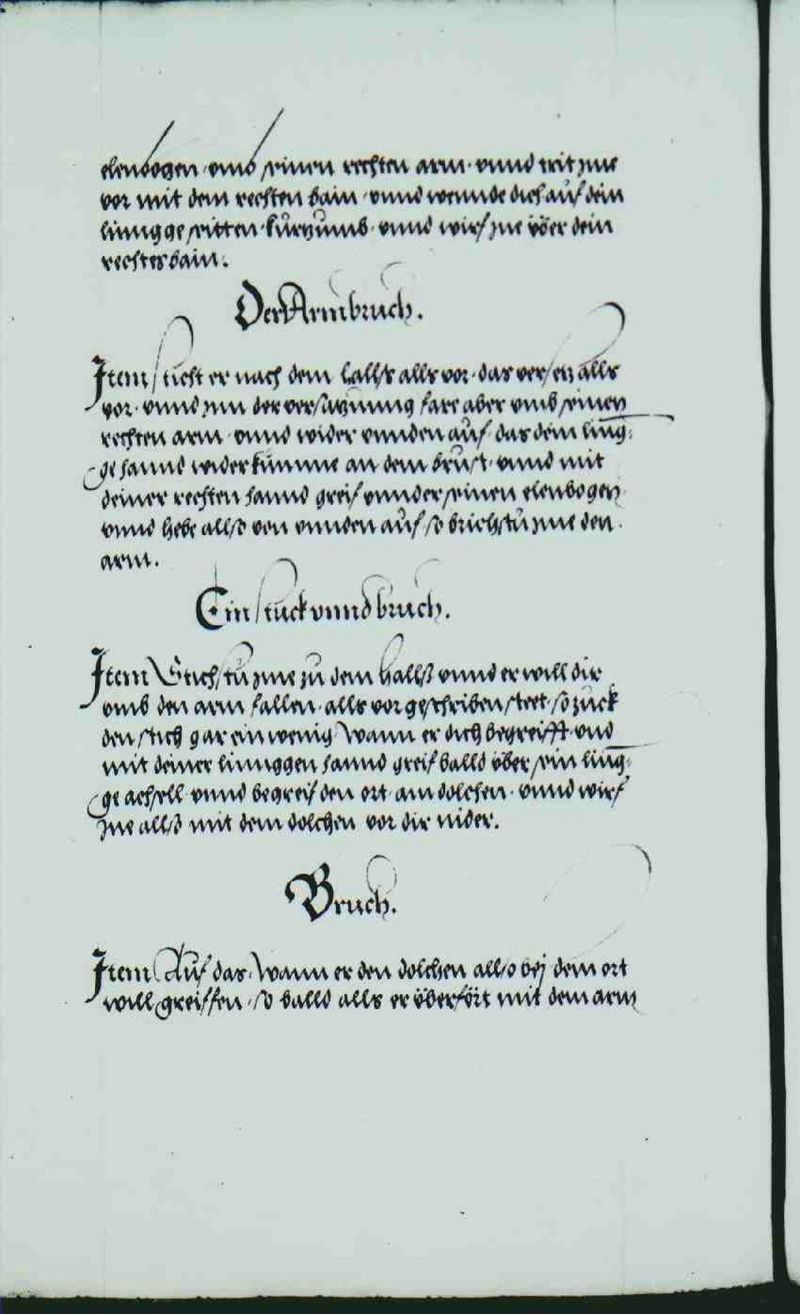 elenbogen · vmb seinen rechten arm · vnnd trit jme
vor mit dem rechten bain · vnnd wennde dich auf dein
linngge seitten · kurtzumb · vnnd wirf jne über dein
rechtes bain.
Der Armbruch.
Item sticht er nach dem hallß alls vor · das versetz alls
vor · vnnd jnn der versatzunng fare aber vmb seinen
rechten arm · vnnd wider vnnden auf · das dein linng-
ge hannd wider kumme an dein brust · vnnd mit
deiner rechten hannd greif vnnder seinen elenbogen
vnnd hebe allso von vnnden auf so brichstu jme den
arm.
Ein stuck vnnd bruch.
Item Stichstu jme zu dem hallß vnnd er will dir
vmb den arm fallen · alls vorgeschriben steet · so zuck
den stich gar ein wenig · Wann er dich begreifft · vnd
mit deiner linnggen hannd greif balld über sein linng-
ge achsell vnnd begreif den ort am dolchen · vnnd wirf
jne allso mit dem dolchen vor dir nider.
Bruch.
Item Auf das · Wann er den dolchen allso bej dem ort
will greiffen · so balld alls er überfört mit dem arm